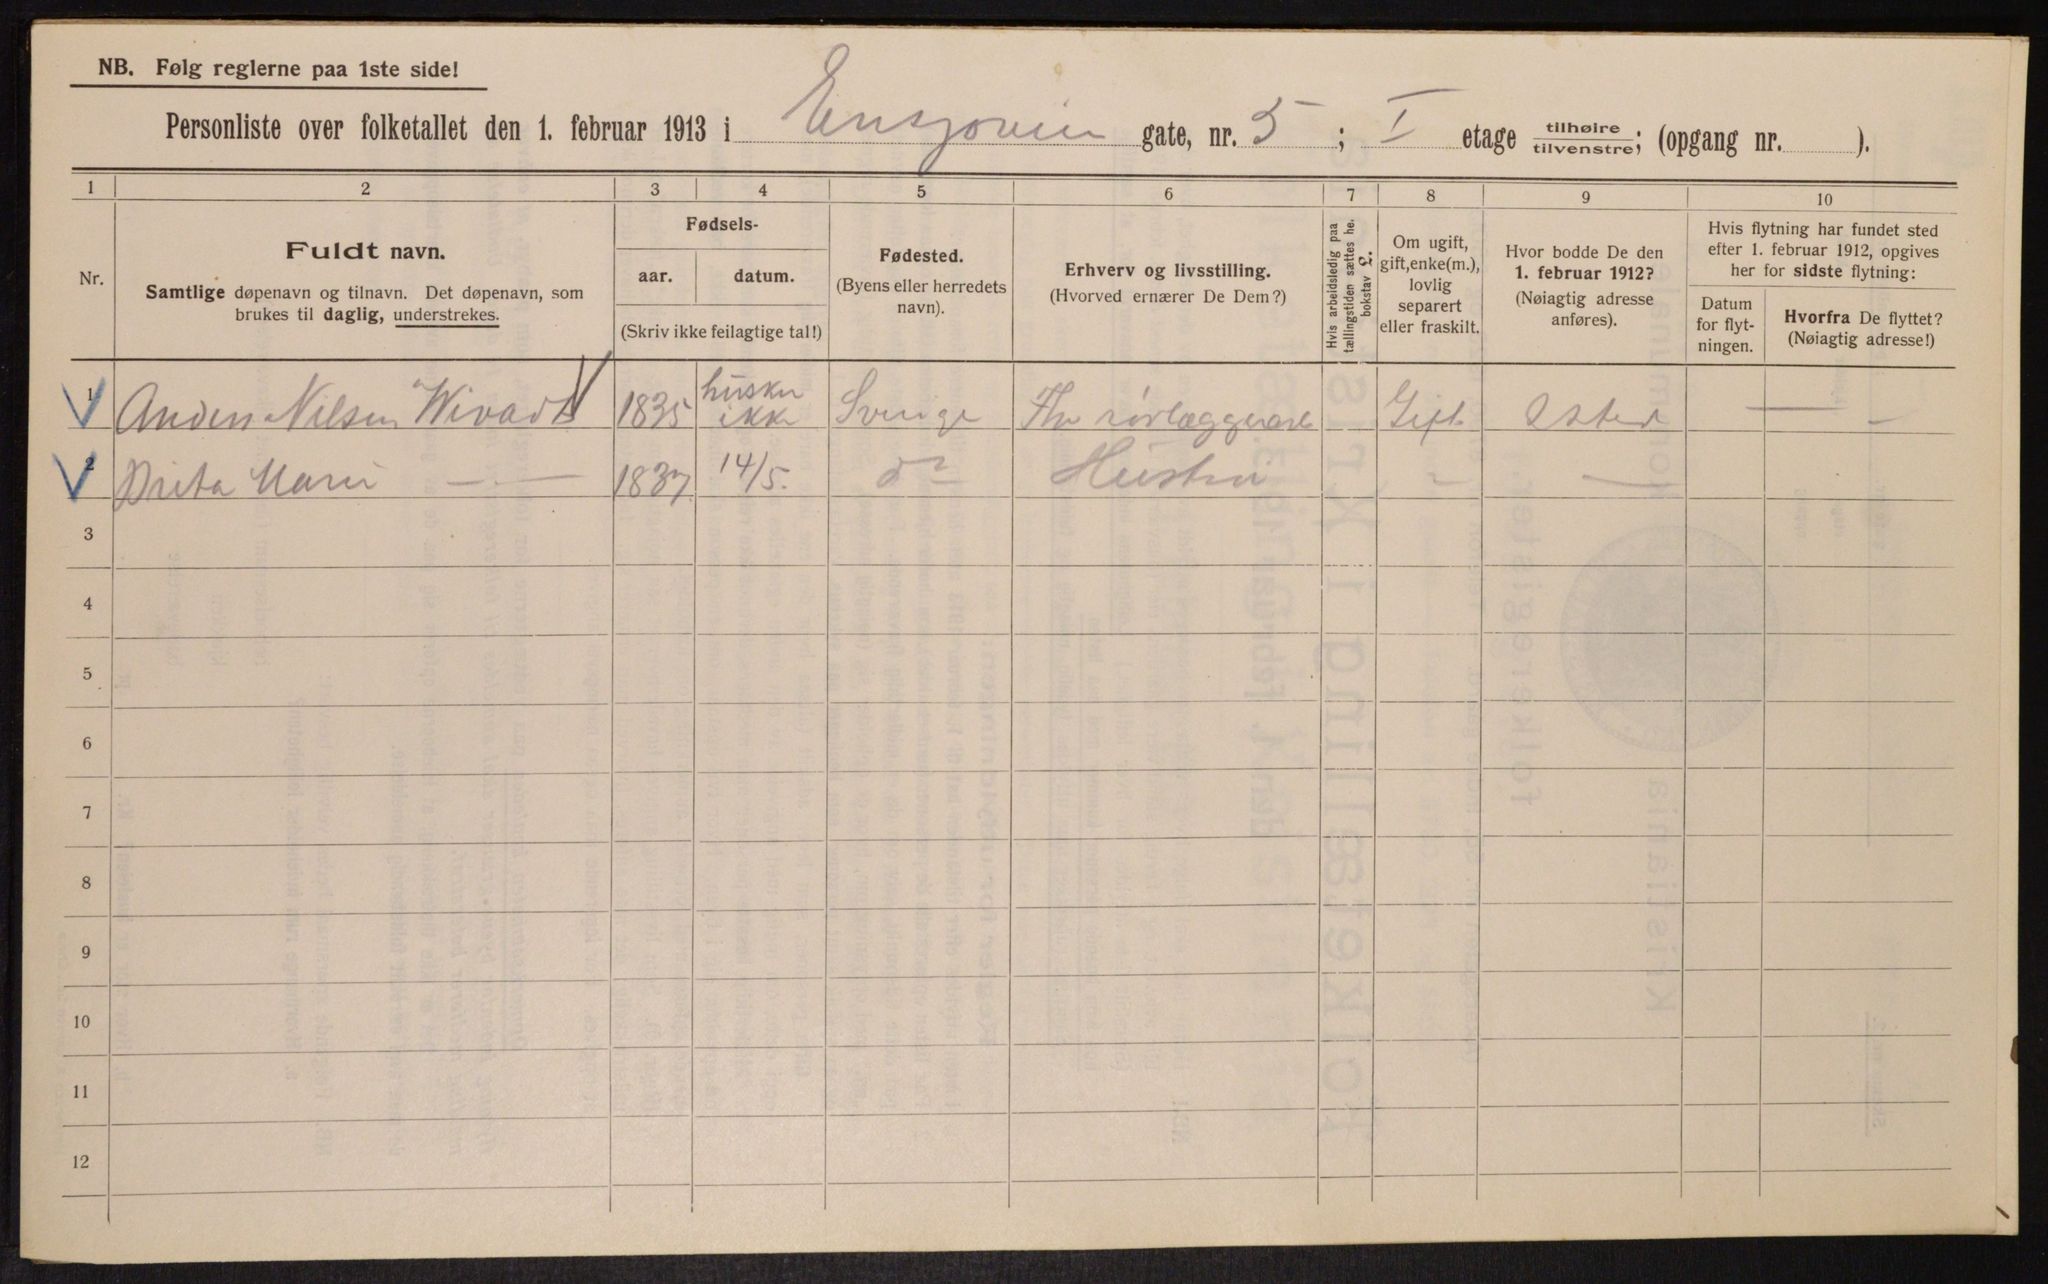 NB. Følg reglerne paa 1ste side!
Personliste over folketallet den 1. februar 1913 i Ensjøvein gate, nr. 5 ; I etage tilhøire tilvenstre; (opgang nr. ).
1 2 3 4 5 6 7 8 9 10
Nr.
Fuldt navn.
Samtlige døpenavn og tilnavn. Det døpenavn, som
brukes til daglig, understrekes.
Fødsels-
aar. datum.
(Skriv ikke feilagtige tal!)
Fødested.
(Byens eller herredets
navn).
Erhverv og livsstilling.
(Hvorved ernærer De Dem?)
Hvis arbeidsledig paa
tællingstiden sættes he.
bokstav L.
Om ugift,
gift, enke(m.),
lovlig
separert
eller fraskilt.
Hvor bodde De den
1. februar 1912?
(Nøiagtig adresse
anføres).
Hvis flytning har fundet sted
efter 1. februar 1912, opgives
her for sidste flytning:
Datum
for flyt-
ningen.
Hvorfra De flyttet?
(Nøiagtig adresse!)
1 Anders Nilsen Wivardt 1835 husker ikke Sverige Fhv rørlægger Gift — —
2 Brita Marie — 1837 14/5. do Hustru " —
3
4
5
6
7
8
9
10
11
12